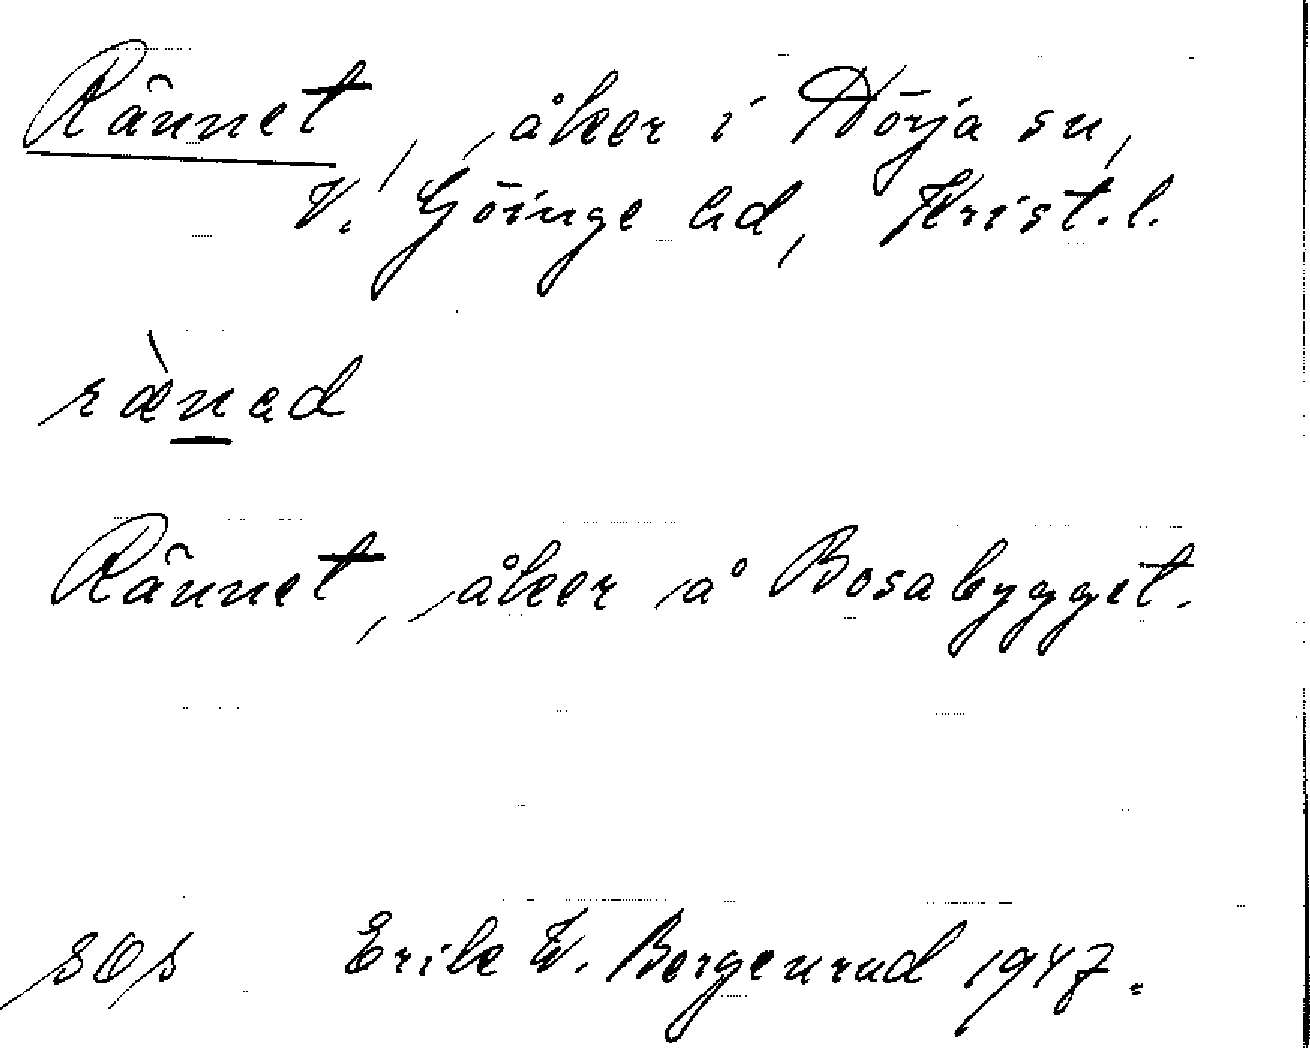 Rännet, åker i Hörja sn,
V. Göinge hd, Krist. l.
ræ̀nad
Rännet, åker å Bosabygget.
SOS Erik W. Bergenrud 1947.